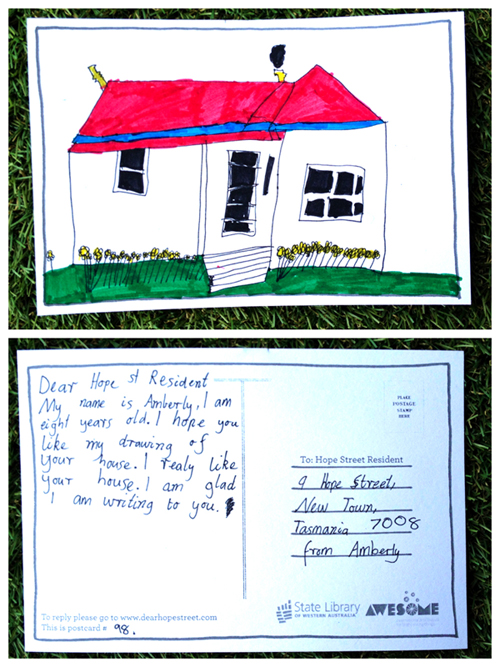 Dear Hope st Resident
My name is Amberly, I am
eight years old. I hope you
like my drawing of
your house. I realy like
your house. I am glad
I am writing to you.
To reply please go to www.dearhopestreet.com
This is postcard # 98.
PLACE
POSTAGE
STAMP
HERE
To: Hope Street Resident
9 Hope Street,
New Town,
Tasmania 7008
from Amberly
State Library
OF WESTERN AUSTRALIA
AWESOME